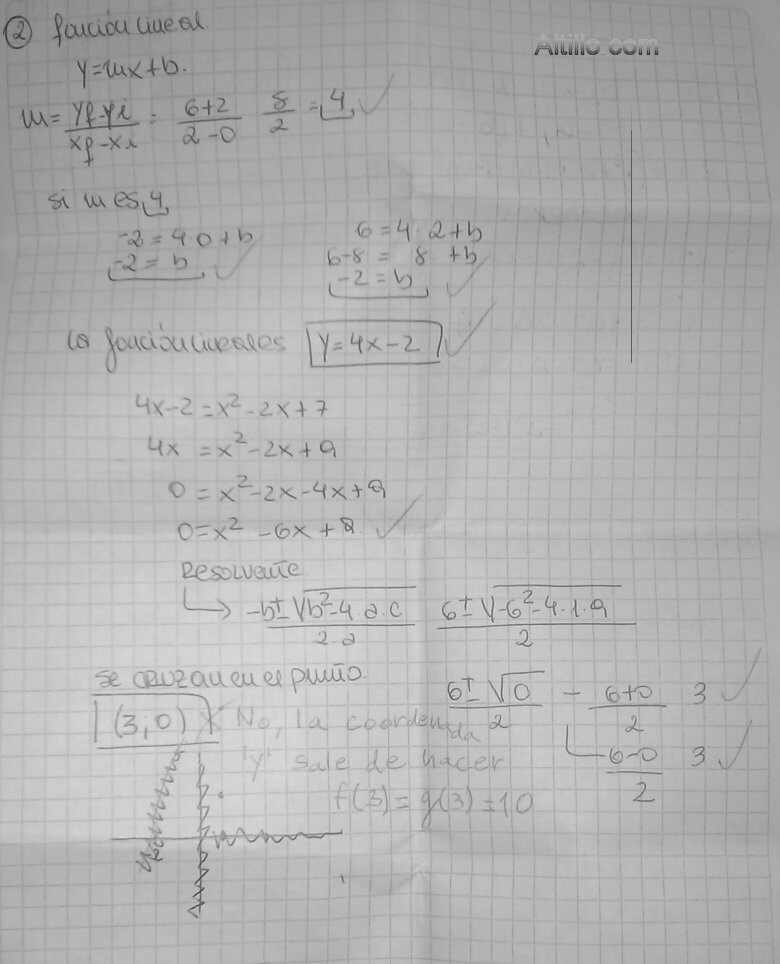 ② función lineal
Altillo.com
y=mx+b.
m= yf-yi / xf-xi = 6+2 / 2-0 8/2 = 4 ✓
si m es 4
-2 = 4·0+b
-2 = b ✓
6=4·2+b
6-8 = 8 +b
-2 = b ✓
la función lineal es y=4x-2 ✓
4x-2 = x²-2x+7
4x = x²-2x+9
0 = x²-2x-4x+9
0=x² -6x+9 ✓
Resolvente
→ -b±√b²-4.a.c / 2.a 6±√-6²-4.1.9 / 2
se cruzan en el punto
6±√0 / 2 - 6+0 / 2 3 ✓
6-0 / 2 3 ✓
(3,0) X No, la coordenada
"y" sale de hacer
f(3)=g(3)=10